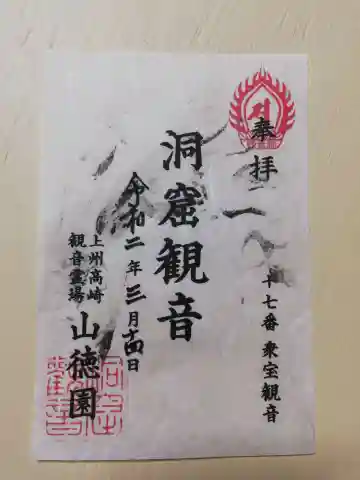 奉拝
二一
十七番 衆宝観音
洞窟観音
令和二年三月十四日
上州高崎
観音霊場
山徳園